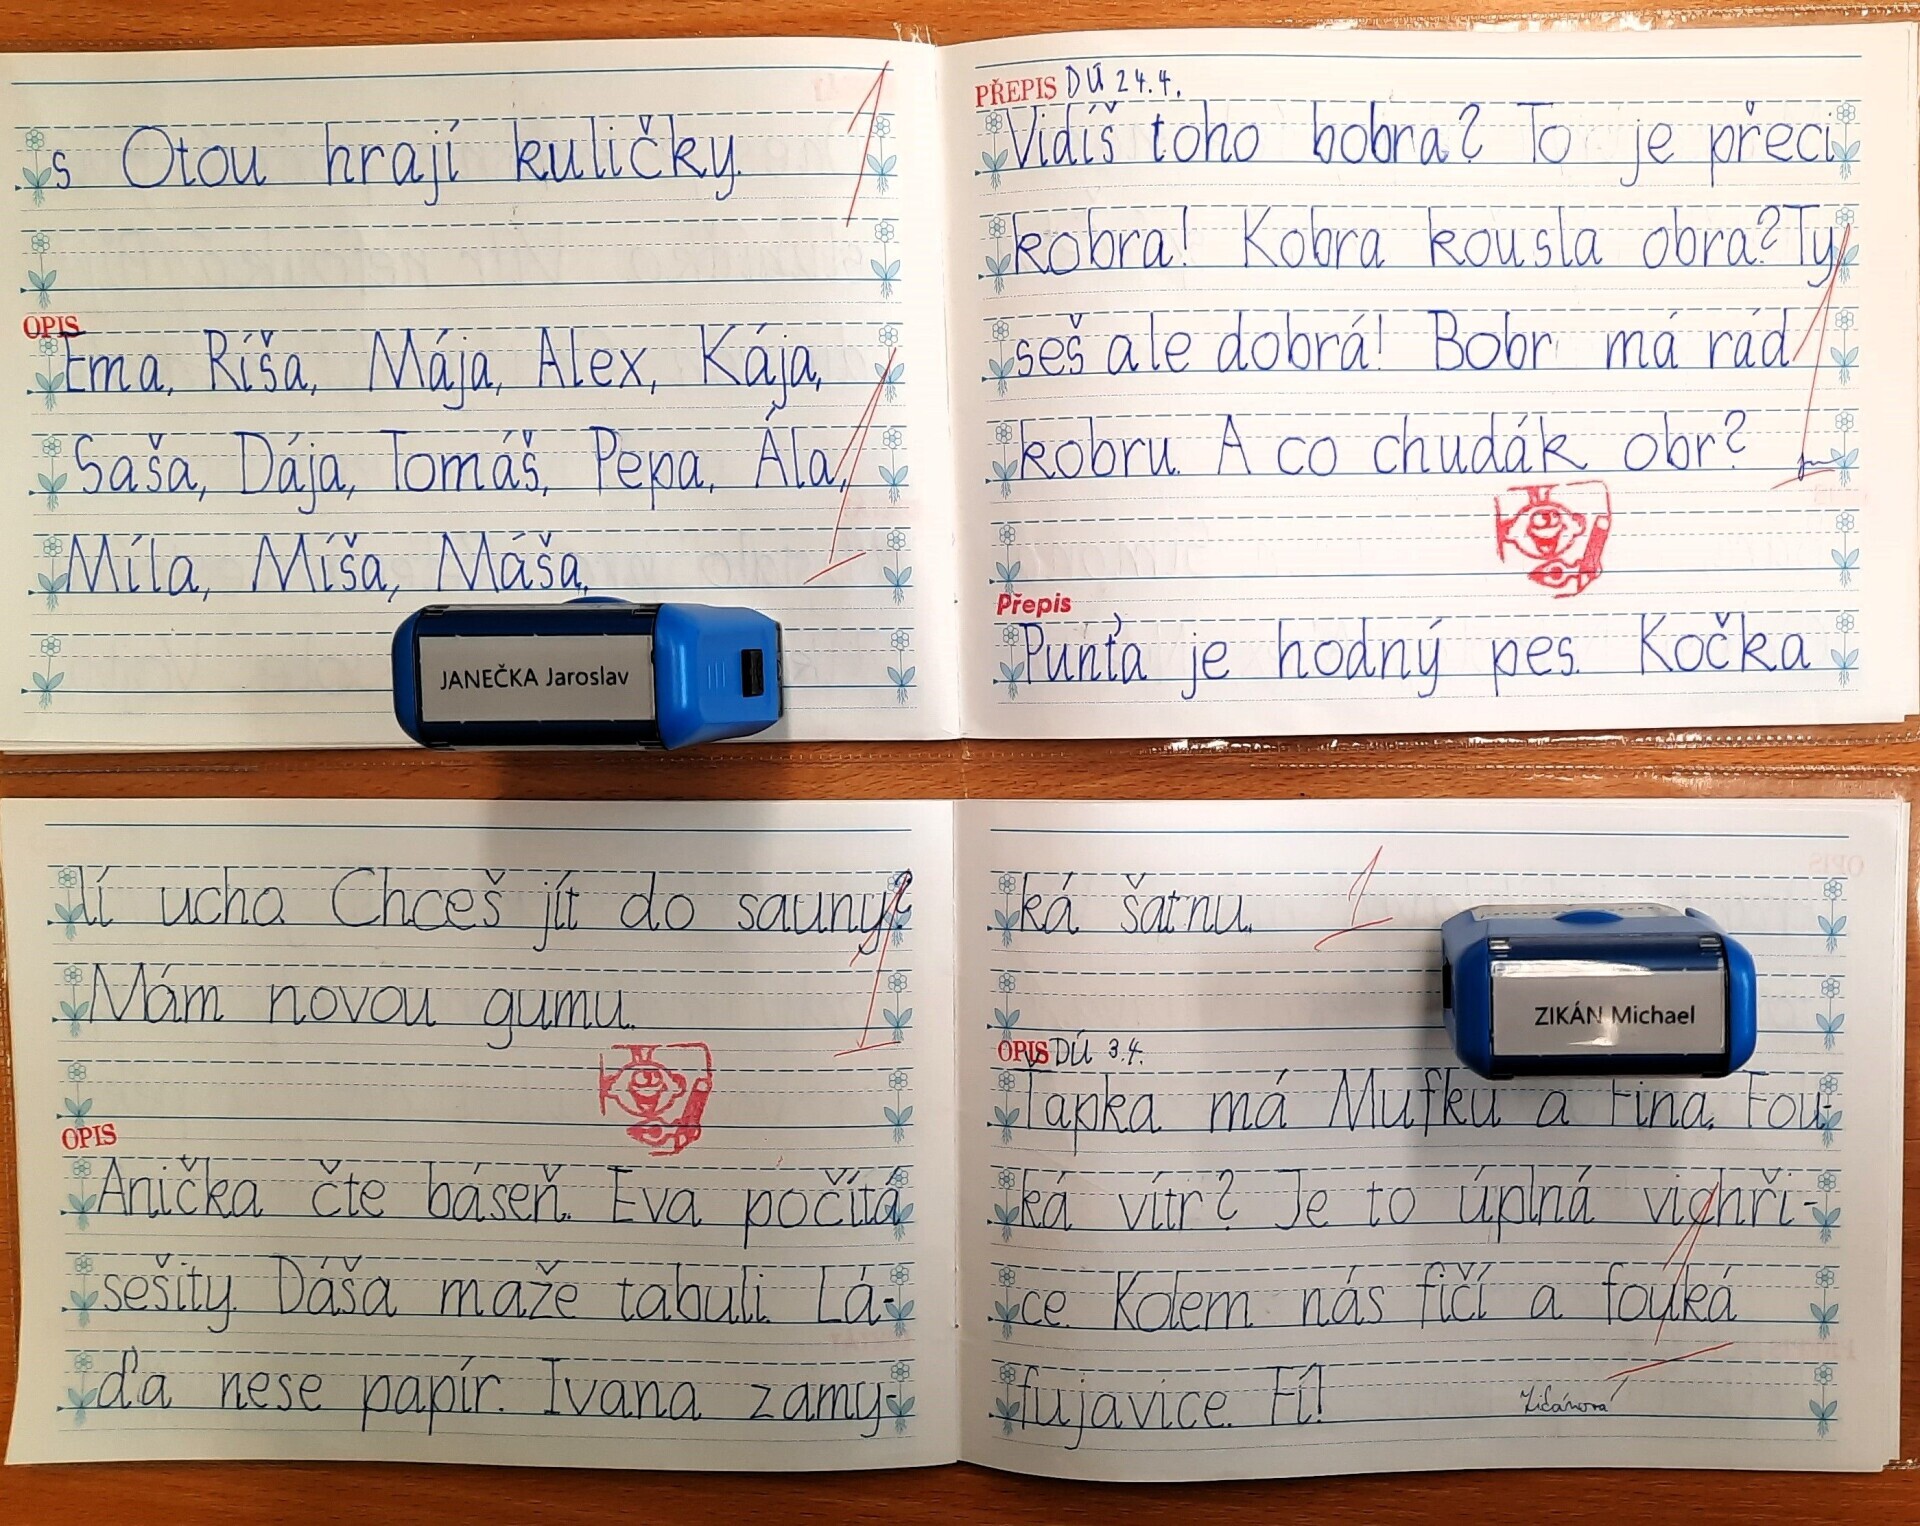 s Otou hrají kuličky.
1
OPIS
Ema, Ríša, Mája, Alex, Kája,
Saša, Dája, Tomáš, Pepa, Ála,
Míla, Míša, Máša.
1
JANEČKA Jaroslav
PŘEPIS DÚ 24.4.
Vidíš toho bobra? To je přeci
kobra! Kobra kousla obra? Ty
seš ale dobrá! Bobr má rád
kobru. A co chudák obr?
1
Přepis
Punťa je hodný pes. Kočka
lí ucho. Chceš jít do sauny?
Mám novou gumu.
1
OPIS
Anička čte báseň. Eva počítá
sešity. Dáša maže tabuli. Lá-
ďa nese papír. Ivana zamy-
ká šatnu.
1
ZIKÁN Michael
OPIS DÚ 3.4.
Ťapka má Mufku a Fina. Fou-
ká vítr? Je to úplná vichři-
ce. Kolem nás fičí a fouká
fujavice. Fí!
1
Zikánová